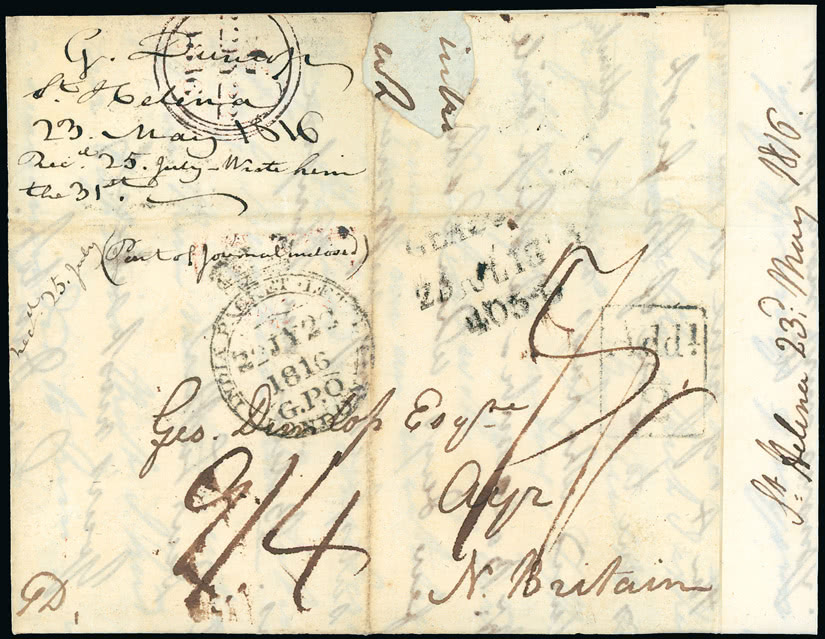 G. Dunlop
St. Helena
23. May 1816
Recd. 25. July - Wrote him
the 31st.
(Part of Journal inclosed)
recd. 25. July
INDIA PACKET LETTER
JY 22
1816
G.P.O
LONDON
25 JUL 1816
405
Addl
½
Geo. Dunlop Esqre
Ayr
N. Britain
2/4
GD
St. Helena 23d. May 1816.